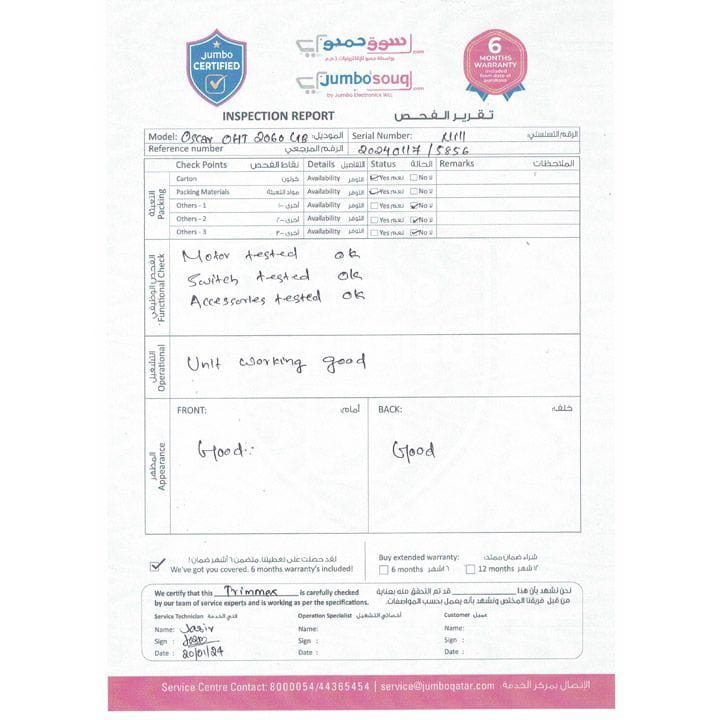 Jumbo
CERTIFIED
سوق جمبو.com
بواسطة جمبو للإلكترونيات ذ.م.م
Jumbosouq.com
by Jumbo Electronics WLL
6
MONTHS
WARRANTY
included
from date of
purchase
INSPECTION REPORT تقرير الفحص
Model: OSCAR OHT 2060 UB الموديل: Serial Number: الرقم التسلسلي:
Reference number الرقم المرجعي 20240117/5856
Check Points نقاط الفحص Details التفاصيل Status الحالة Remarks الملاحظات
التعبئة Packing
Carton كرتون Availability التوفر Yes نعم No لا
Packing Materials مواد التعبئة Availability التوفر Yes نعم No لا
Others - 1 أخرى-١ Availability التوفر Yes نعم No لا
Others - 2 أخرى-٢ Availability التوفر Yes نعم No لا
Others - 3 أخرى-٣ Availability التوفر Yes نعم No لا
الفحص الوظيفي Functional Check
Motor tested ok
Switch tested ok
Accessories tested ok
التشغيل Operational
Unit working good
المظهر Appearance
FRONT: أمام: BACK: خلف:
Good Good
لقد حصلت على تغطيتنا، متضمن ٦ أشهر ضمان!
We've got you covered. 6 months warranty's included!
Buy extended warranty: شراء ضمان ممتد:
6 months ٦ أشهر 12 months ١٢ شهر
We certify that this Trimmer is carefully checked
by our team of service experts and is working as per the specifications.
نحن نشهد بأن هذا قد تم التحقق منه بعناية
من قبل فريقنا المختص ونشهد بأنه يعمل بحسب المواصفات.
Service Technician فني الخدمة Operation Specialist أخصائي التشغيل Customer عميل
Name: Jasir Name: Name:
Sign : Sign : Sign :
Date : 20/01/24 Date : Date :
Service Centre Contact: 8000054/44365454 | service@jumboqatar.com | الإتصال بمركز الخدمة